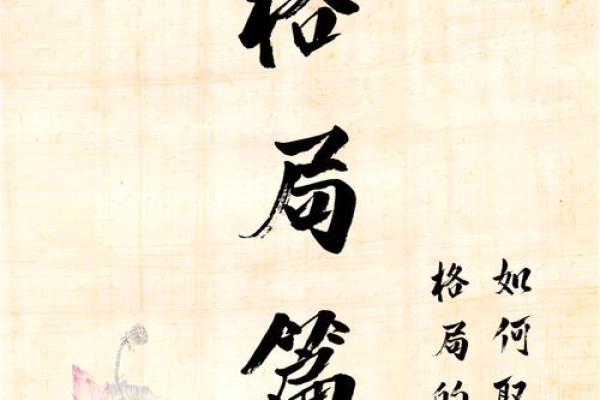 格局篇
如何取
格局的